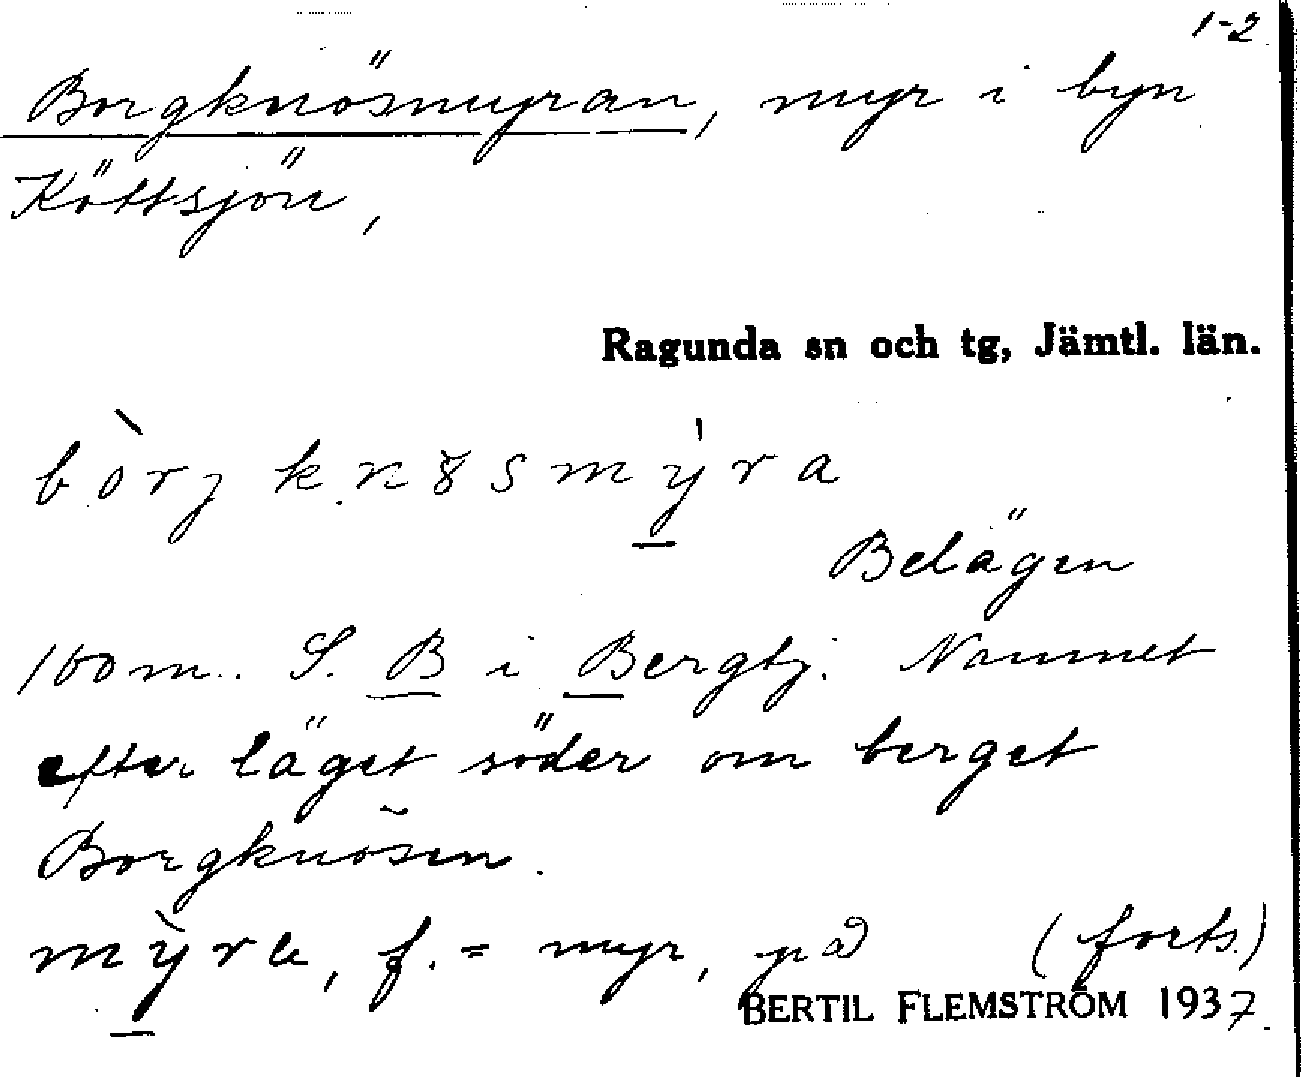 1-2
Borgknösmyran, myr i byn
Köttsjön,
Ragunda sn och tg, Jämtl. län.
bòrj knɤs mýra
Belägen
100 m. S. B i Bergtj. Namnet
efter läget söder om berget
Borgknösen.
mỳra, f. = myr, på (forts.)
BERTIL FLEMSTRÖM 1937.